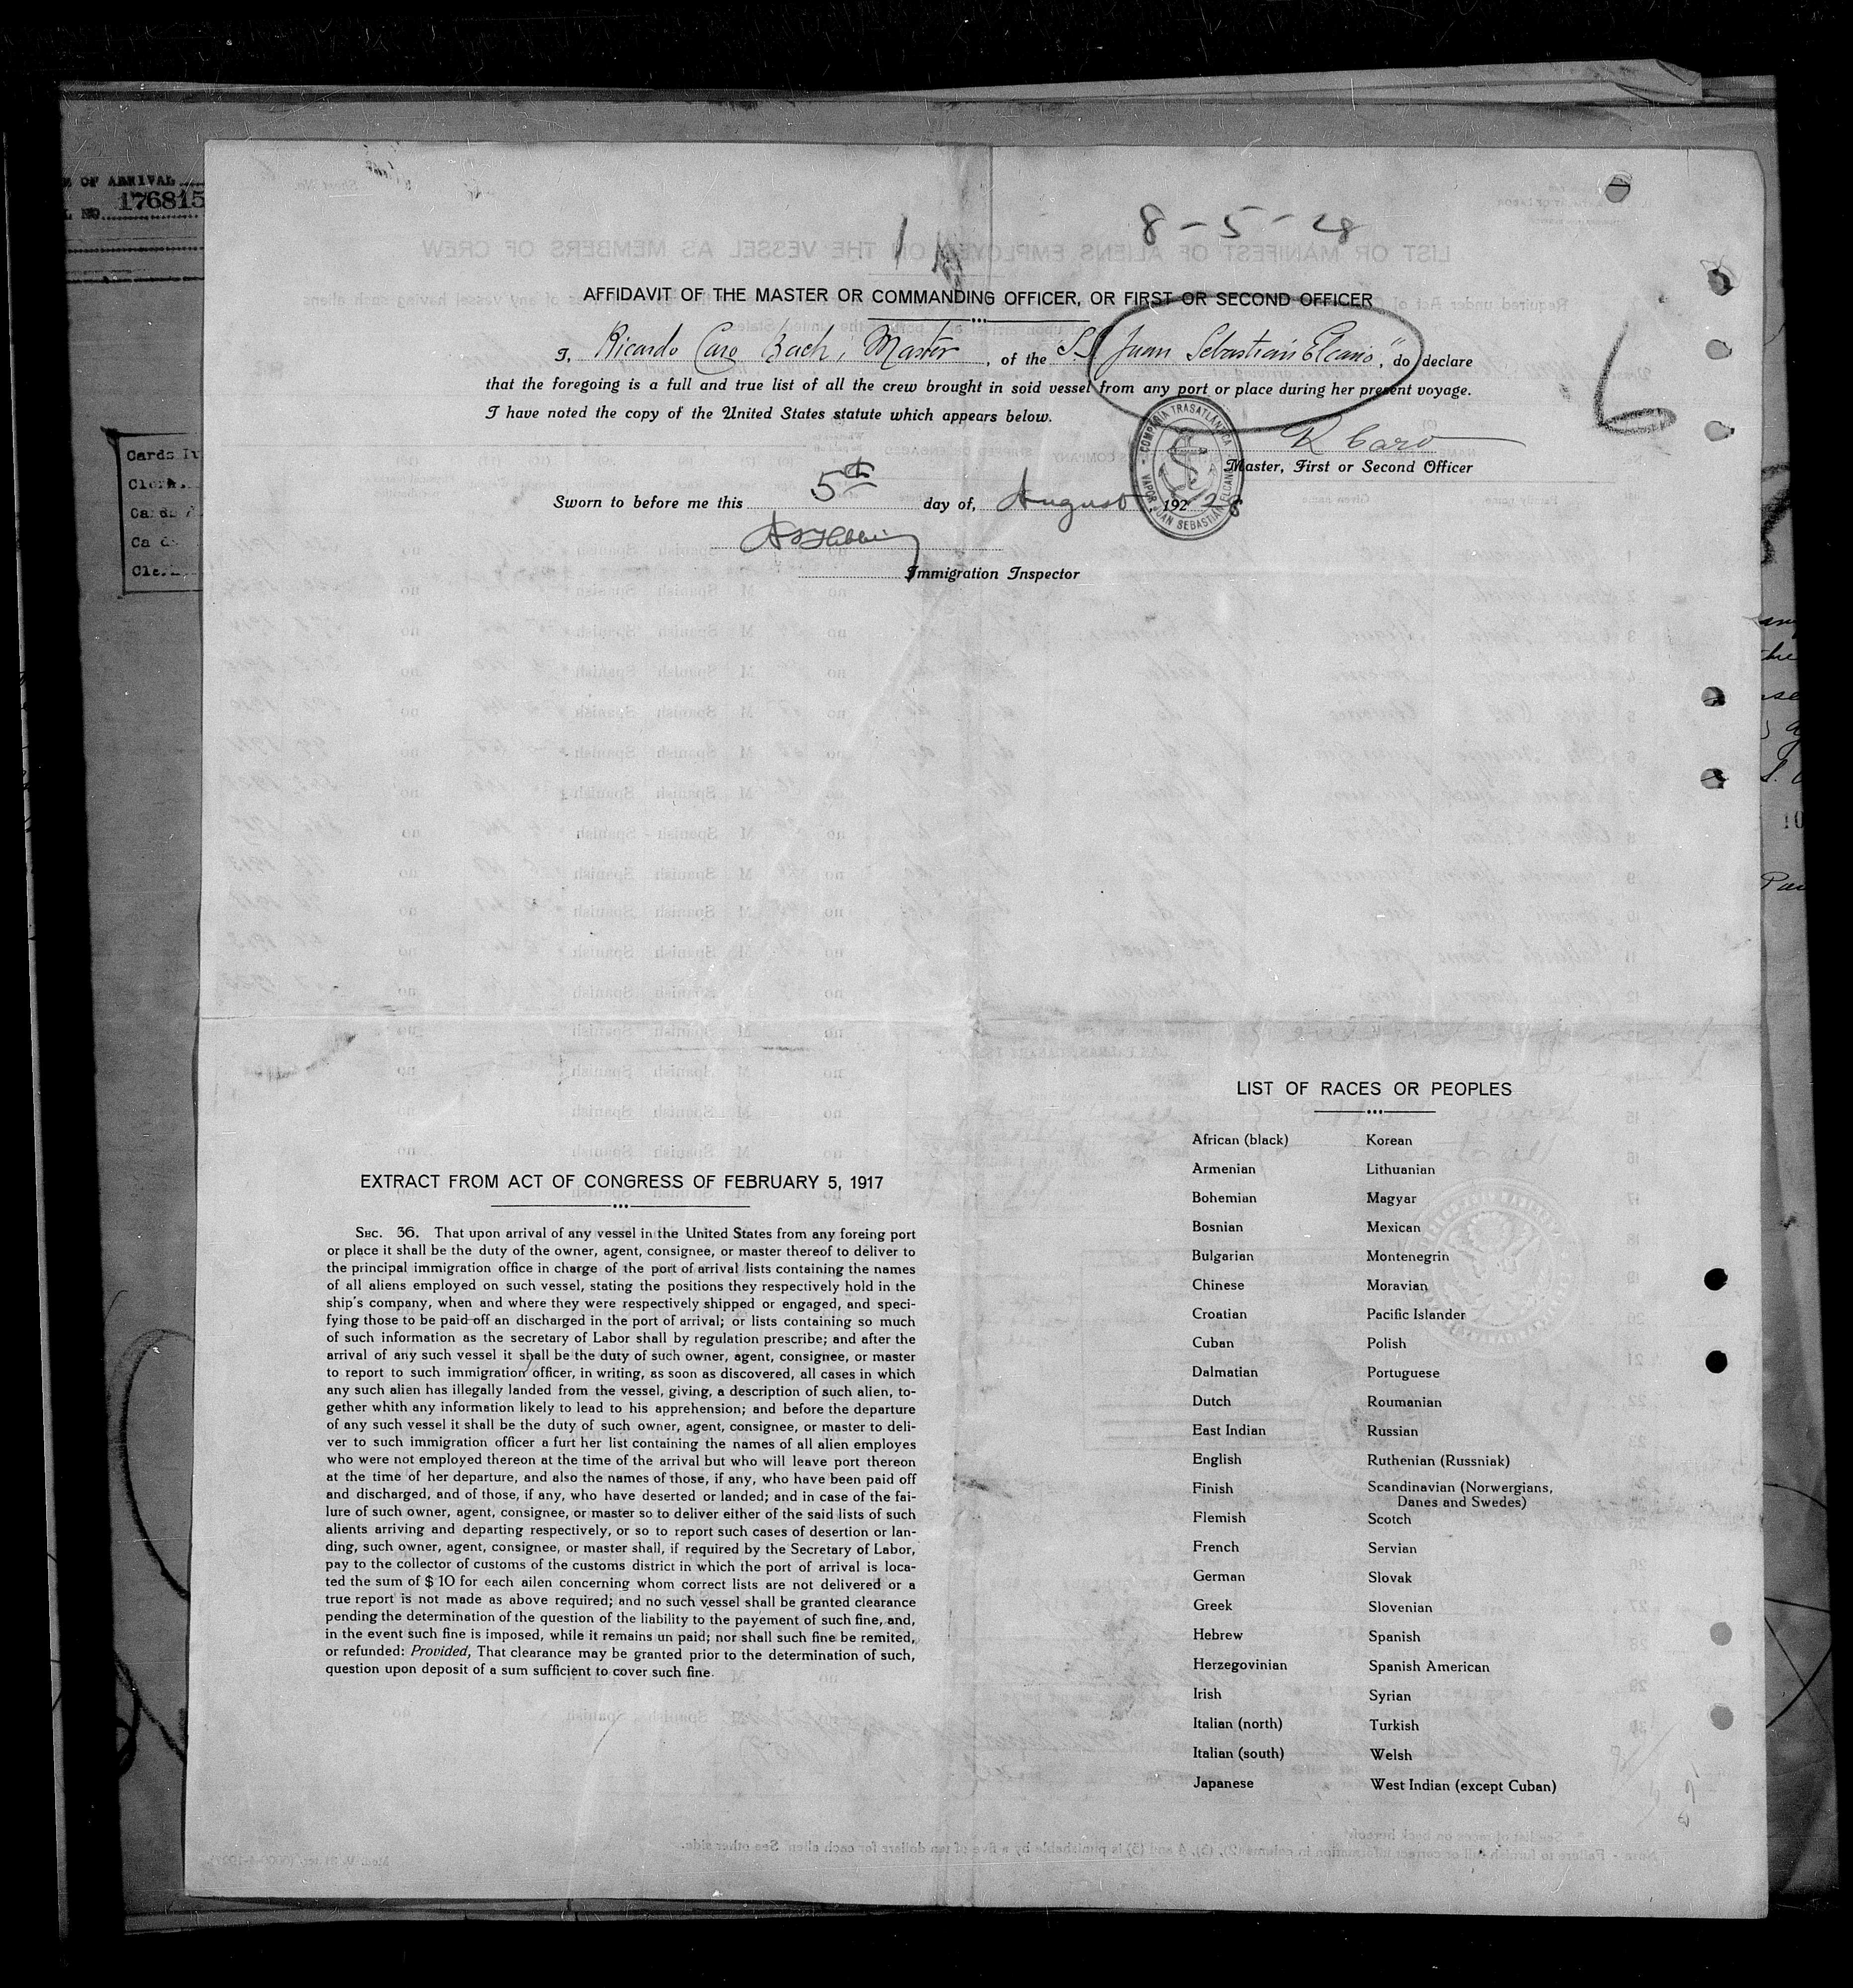 E OF ARRIVAL
L NO. 176815
Cards
Clerk.
Cards
8-5-28
1
6
AFFIDAVIT OF THE MASTER OR COMMANDING OFFICER, OR FIRST OR SECOND OFFICER
I, Ricardo Caro Bach, Master, of the S.S. "Juan Sebastián Elcano," do declare
that the foregoing is a full and true list of all the crew brought in soid vessel from any port or place during her present voyage.
I have noted the copy of the United States statute which appears below.
R Caro
COMPAÑIA TRASATLANTICA
VAPOR JUAN SEBASTIAN ELCANO
Master, First or Second Officer
Sworn to before me this 5th day of, August, 192 28
Immigration Inspector
EXTRACT FROM ACT OF CONGRESS OF FEBRUARY 5, 1917
SEC. 36. That upon arrival of any vessel in the United States from any foreing port
or place it shall be the duty of the owner, agent, consignee, or master thereof to deliver to
the principal immigration office in charge of the port of arrival lists containing the names
of all aliens employed on such vessel, stating the positions they respectively hold in the
ship's company, when and where they were respectively shipped or engaged, and speci-
fying those to be paid off an discharged in the port of arrival; or lists containing so much
of such information as the secretary of Labor shall by regulation prescribe; and after the
arrival of any such vessel it shall be the duty of such owner, agent, consignee, or master
to report to such immigration officer, in writing, as soon as discovered, all cases in which
any such alien has illegally landed from the vessel, giving, a description of such alien, to-
gether whith any information likely to lead to his apprehension; and before the departure
of any such vessel it shall be the duty of such owner, agent, consignee, or master to deli-
ver to such immigration officer a furt her list containing the names of all alien employes
who were not employed thereon at the time of the arrival but who will leave port thereon
at the time of her departure, and also the names of those, if any, who have been paid off
and discharged, and of those, if any, who have deserted or landed; and in case of the fai-
lure of such owner, agent, consignee, or master so to deliver either of the said lists of such
alients arriving and departing respectively, or so to report such cases of desertion or lan-
ding, such owner, agent, consignee, or master shall, if required by the Secretary of Labor,
pay to the collector of customs of the customs district in which the port of arrival is loca-
ted the sum of $ 10 for each ailen concerning whom correct lists are not delivered or a
true report is not made as above required; and no such vessel shall be granted clearance
pending the determination of the question of the liability to the payement of such fine, and,
in the event such fine is imposed, while it remains un paid; nor shall such fine be remited,
or refunded: Provided, That clearance may be granted prior to the determination of such,
question upon deposit of a sum sufficient to cover such fine.
LIST OF RACES OR PEOPLES
African (black) Korean
Armenian Lithuanian
Bohemian Magyar
Bosnian Mexican
Bulgarian Montenegrin
Chinese Moravian
Croatian Pacific Islander
Cuban Polish
Dalmatian Portuguese
Dutch Roumanian
East Indian Russian
English Ruthenian (Russniak)
Finish Scandinavian (Norwergians,
Danes and Swedes)
Flemish Scotch
French Servian
German Slovak
Greek Slovenian
Hebrew Spanish
Herzegovinian Spanish American
Irish Syrian
Italian (north) Turkish
Italian (south) Welsh
Japanese West Indian (except Cuban)